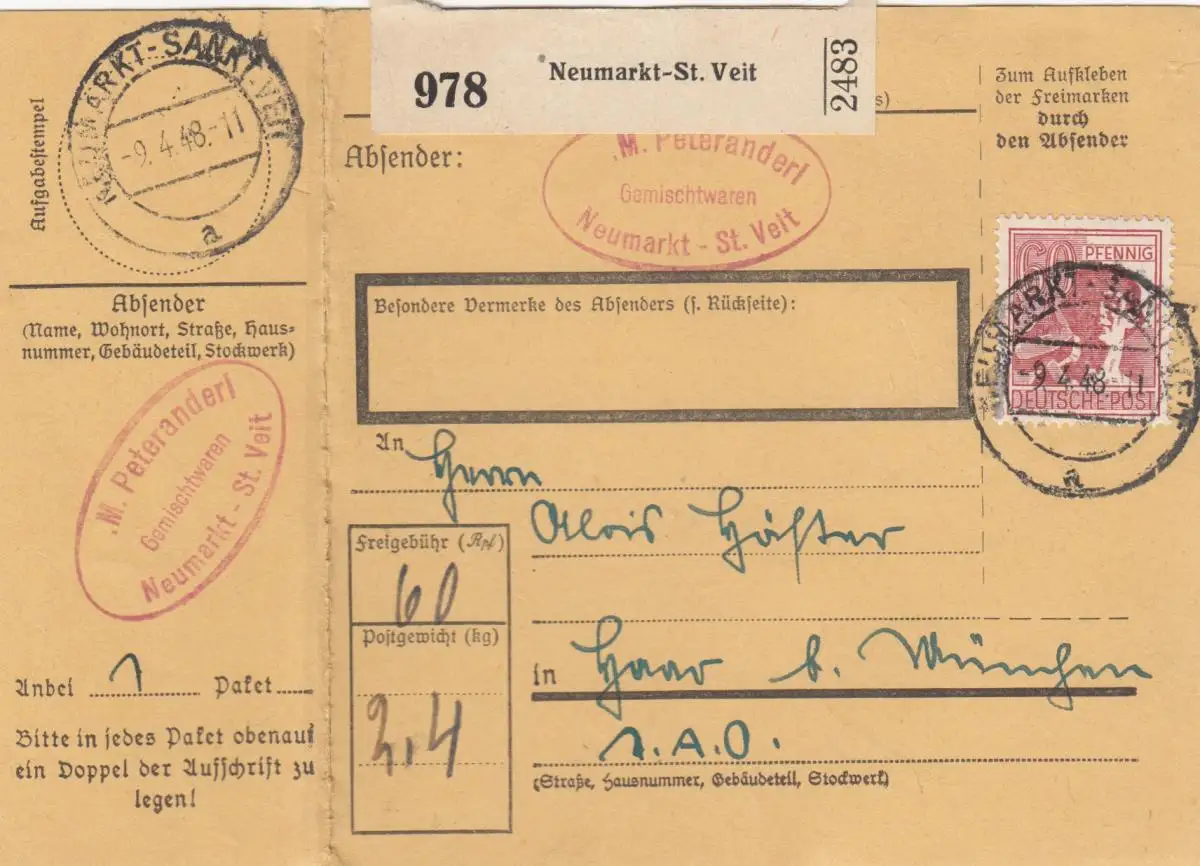 NEUMARKT-SANKT VEIT
-9.4.48.-11
a
Aufgabestempel
Absender
(Name, Wohnort, Straße, Haus=
nummer, Gebäudeteil, Stockwerk)
M. Peteranderl
Gemischtwaren
Neumarkt - St. Veit
Anbei 1 Paket
Bitte in jedes Paket obenauf
ein Doppel der Aufschrift zu
legen!
978 Neumarkt-St. Veit 2483
Absender:
M. Peteranderl
Gemischtwaren
Neumarkt - St. Veit
Zum Aufkleben
der Freimarken
durch
den Absender
60 PFENNIG
DEUTSCHE POST
NEUMARKT-SANKT VEIT
-9.4.48.-11
a
Besondere Vermerke des Absenders (s. Rückseite):
An Herrn
Alois
Freigebühr (Rpf)
60
Postgewicht (kg)
2,4
in Haar b. München
(Straße, Hausnummer, Gebäudeteil, Stockwerk)